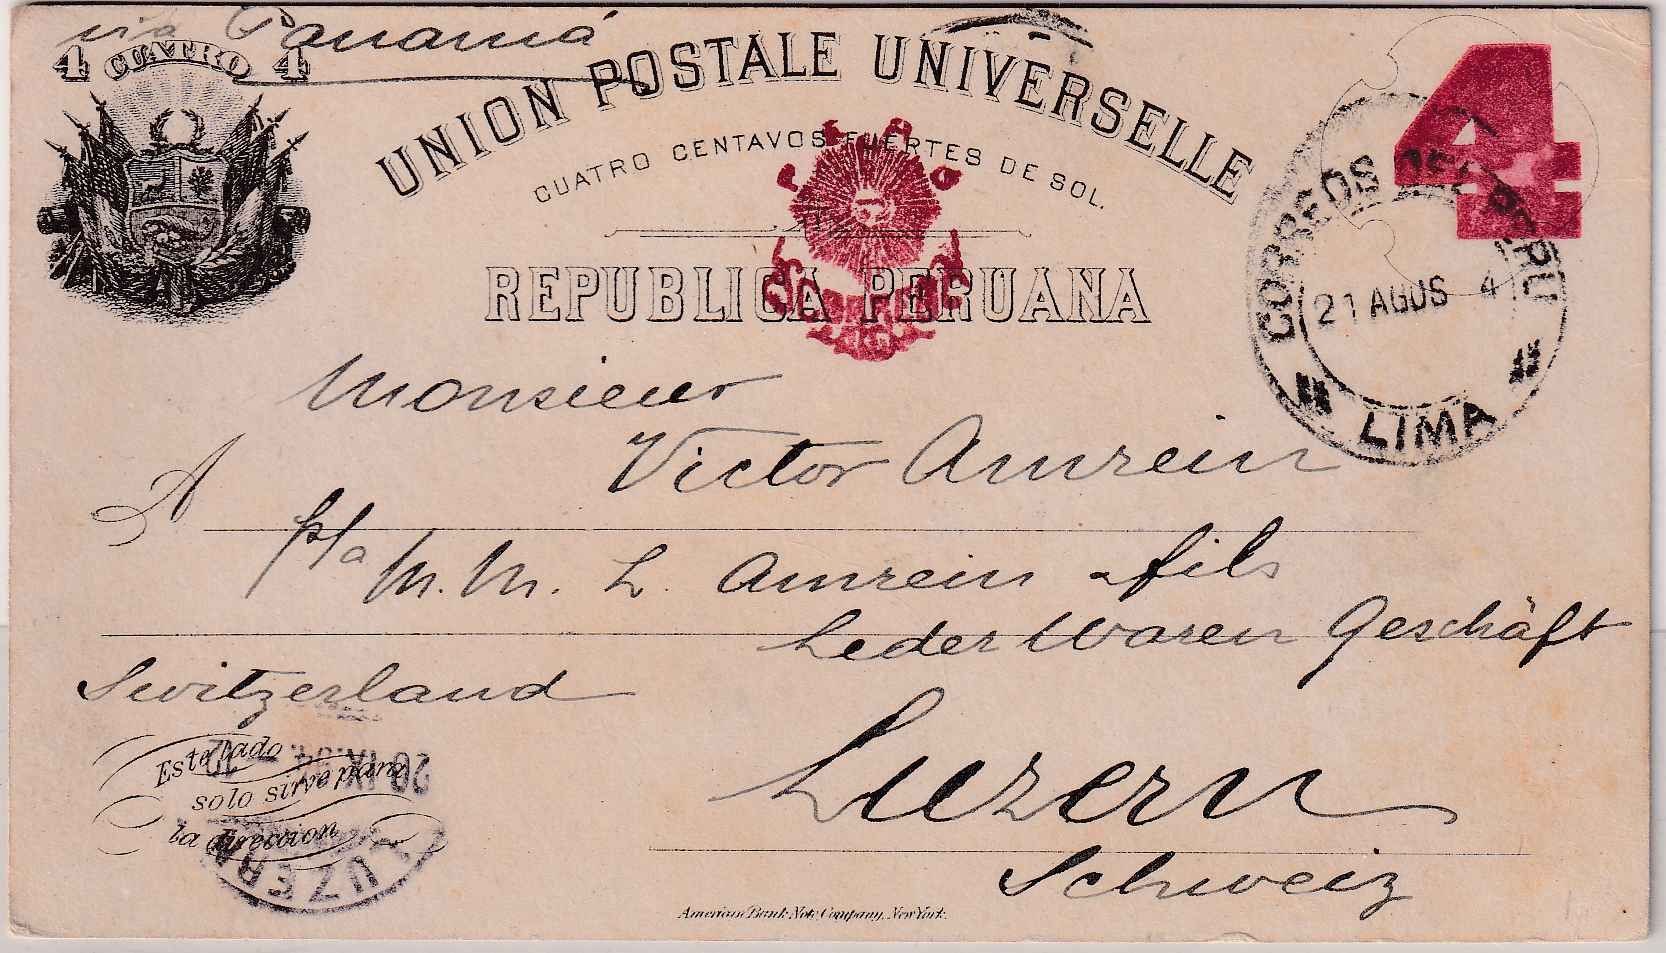 via Panamá
4 CUATRO 4
UNION POSTALE UNIVERSELLE
CUATRO CENTAVOS FUERTES DE SOL.
REPUBLICA PERUANA
4
CORREOS DEL PERU
21 AGOS 4
LIMA
Monsieur
Victor Amrein
A
p/a M. M. L. Amrein & fils
Leder Waren Geschäft
Switzerland
Luzern
Schweiz
Este lado
solo sirve para
la direccion
20 IX
LUZERN
American Bank Note Company, New York.